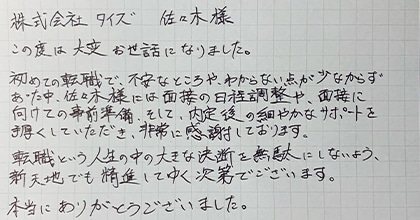 株式会社 タイズ 佐々木様
この度は大変お世話になりました。
初めての転職で、不安なところや、わからない点が少なからず
あった中、佐々木様には面接の日程調整や、面接に
向けての事前準備、そして、内定後の細やかなサポートを
手厚くしていただき、非常に感謝しております。
転職という人生の中の大きな決断を無駄にしないよう、
新天地でも精進してゆく次第でございます。
本当にありがとうございました。